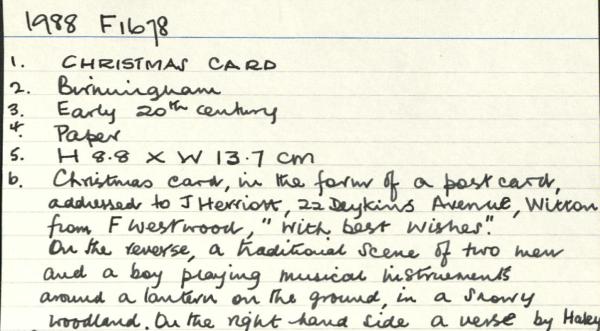 1988 F1678
1. CHRISTMAS CARD
2. Birmingham
3. Early 20th century
4. Paper
5. H 8.8 X W 13.7 cm
6. Christmas card, in the form of a post card,
addressed to J Herriott, 22 Deykins Avenue, Witton
from F Westwood, "With best wishes".
On the reverse, a traditional scene of two men
and a boy playing musical instruments
around a lantern on the ground, in a snowy
woodland. On the right hand side a verse by Haley